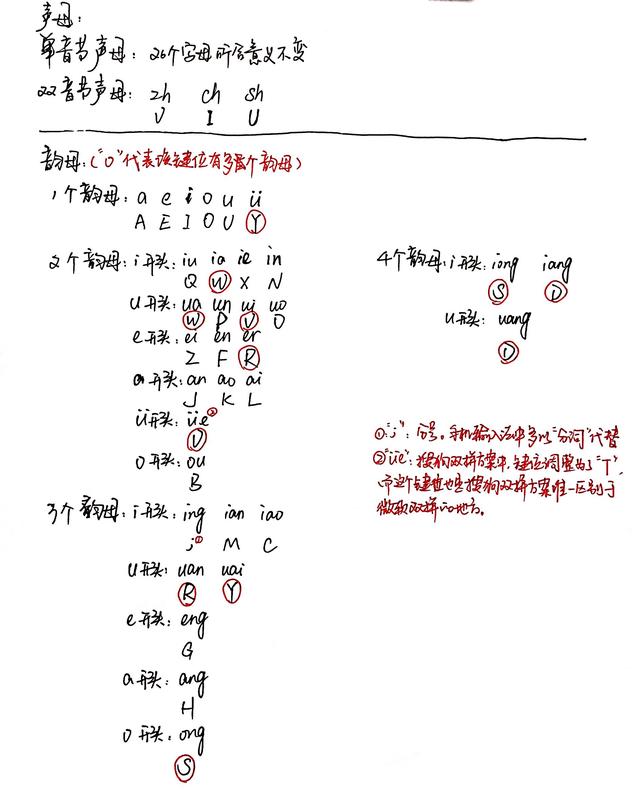 声母:
单音节声母: 26个字母所含意义不变
双音节声母: zh ch sh
V I U
韵母:("O"代表该键位有多个韵母)
1个韵母: a e i o u ü
A E I O U Y
2个韵母: i开头: iu ia ie in
Q W X N
u开头: ua un ui uo
W P V O
e开头: ei en er
Z F R
a开头: an ao ai
J K L
ü开头: üe②
V
o开头: ou
B
3个韵母: i开头: ing ian iao
;① M C
u开头: uan uai
R Y
e开头: eng
G
a开头: ang
H
o开头: ong
S
4个韵母: i开头: iong iang
S D
u开头: uang
D
①";": 分号。手机输入法中多以"分词"代替
②"üe": 搜狗双拼方案中,键位调整为了"T",
而这个键位也是搜狗双拼方案唯一区别于
微软双拼的地方。